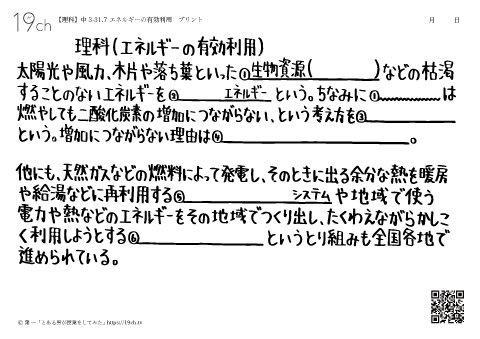 19ch 【理科】中3-31.7 エネルギーの有効利用　プリント　月　日
理科(エネルギーの有効利用)
太陽光や風力、木片や落ち葉といった①生物資源(　　　)などの枯渇
することのないエネルギーを②　　　エネルギーという。ちなみに①は
燃やしても二酸化炭素の増加につながらない、という考え方を③
という。増加につながらない理由は④　　　。
他にも、天然ガスなどの燃料によって発電し、そのときに出る余分な熱を暖房
や給湯などに再利用する⑤　　　システムや地域で使う
電力や熱などのエネルギーをその地域でつくり出し、たくわえながらかしこ
く利用しようとする⑥　　　というとり組みも全国各地で
進められている。
© 葉一「とある男が授業をしてみた」https://19ch.tv